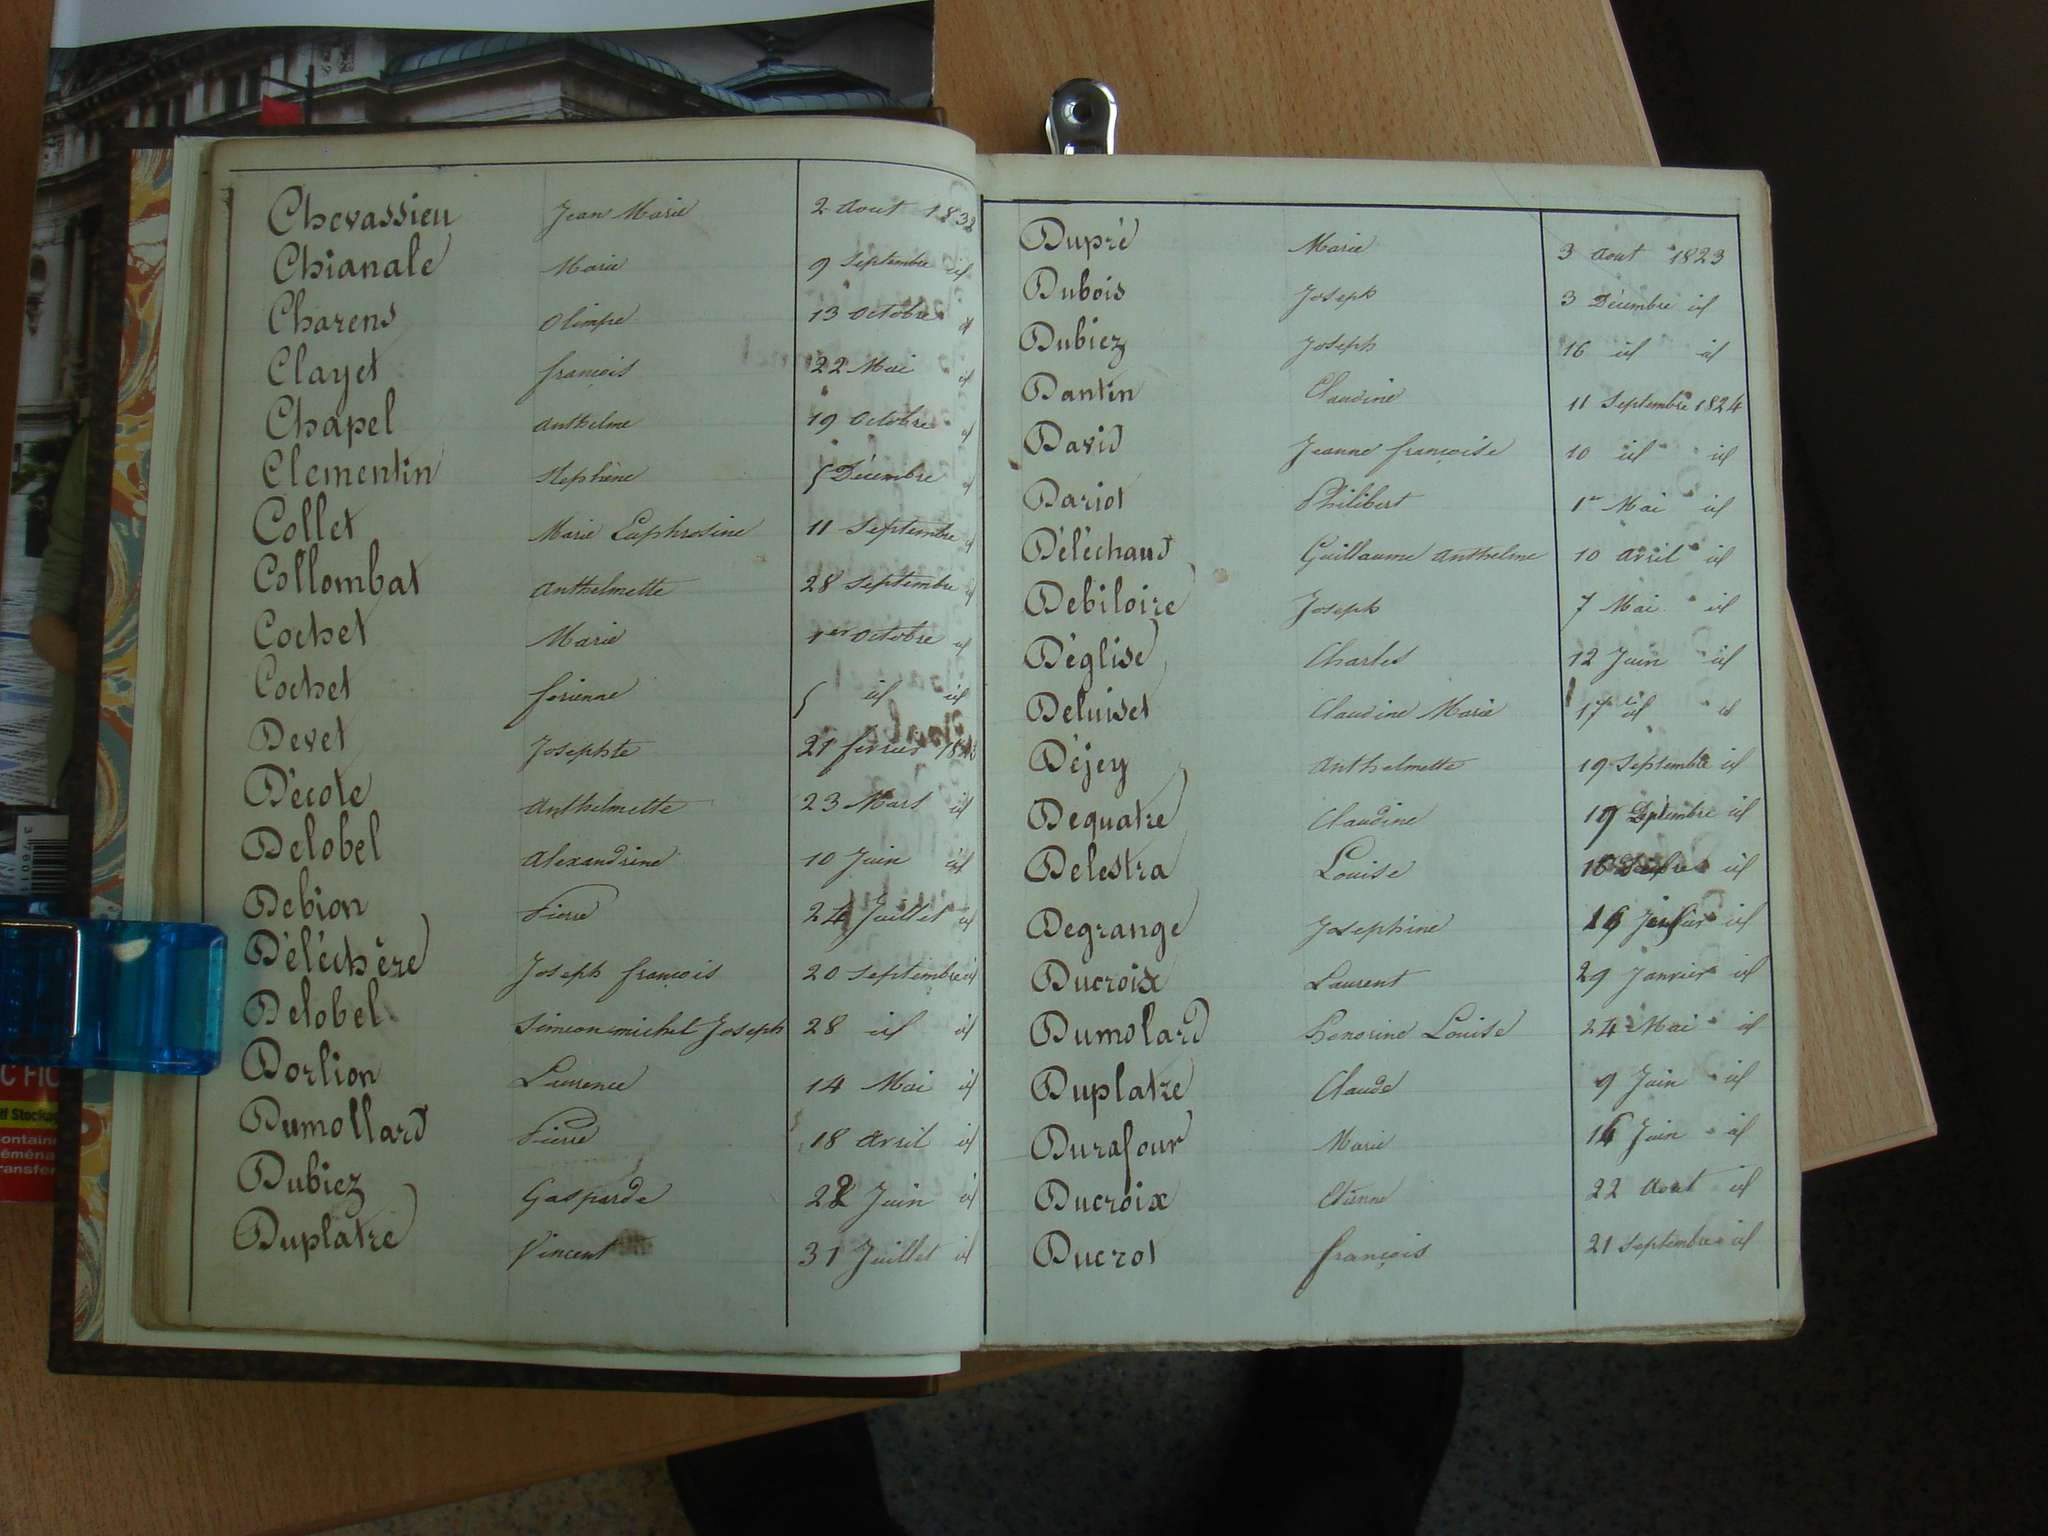 Chevassieu Jean Marie 2 Aout 1832
Chianale Marie 9 Septembre id
Charens Olimpe 13 Octobre id
Clayet françois 22 Mai id
Chapel Anthelme 19 Octobre id
Clementin Stephène 5 Décembre id
Collet Marie Euphrosine 11 Septembre id
Collombat Anthelmette 28 Septembre id
Cochet Marie 1er Octobre id
Cochet 5 id id
Devet Josephte 21 fevrier
Décote Anthelmette 23 Mars id
Delobel Alexandrine 10 Juin id
Debion Pierre 24 Juillet id
Déléchère Joseph françois 20 Septembre id
Delobel Simeon michel Joseph 28 id id
Dorlion Laurence 14 Mai id
Dumollard Pierre 18 Avril id
Dubiez Gasparde 28 Juin id
Duplatre Vincent 31 Juillet id
Dupré Marie 3 Aout 1823
Dubois Joseph 3 Décembre id
Dubiez Joseph 16 id id
Dantin Claudine 11 Septembre 1824
David Jeanne françoise 10 id id
Dariot Philibert 1er Mai id
Déléchaud Guillaume Anthelme 10 Avril id
Debiloire Joseph 7 Mai id
Déglise Charles 12 Juin id
Deluiset Claudine Marie 17 id id
Déjey Anthelmette 19 Septembre id
Dequatre Claudine 19 Septembre id
Delestra Louise id
Degrange Josephine id
Ducroix Laurent 29 Janvier id
Dumolard Henorine Louise 24 Mai id
Duplatre Claude 9 Juin id
Durafour Marie 16 Juin id
Ducroix Etienne 22 Aout id
Ducrot françois 21 Septembre id